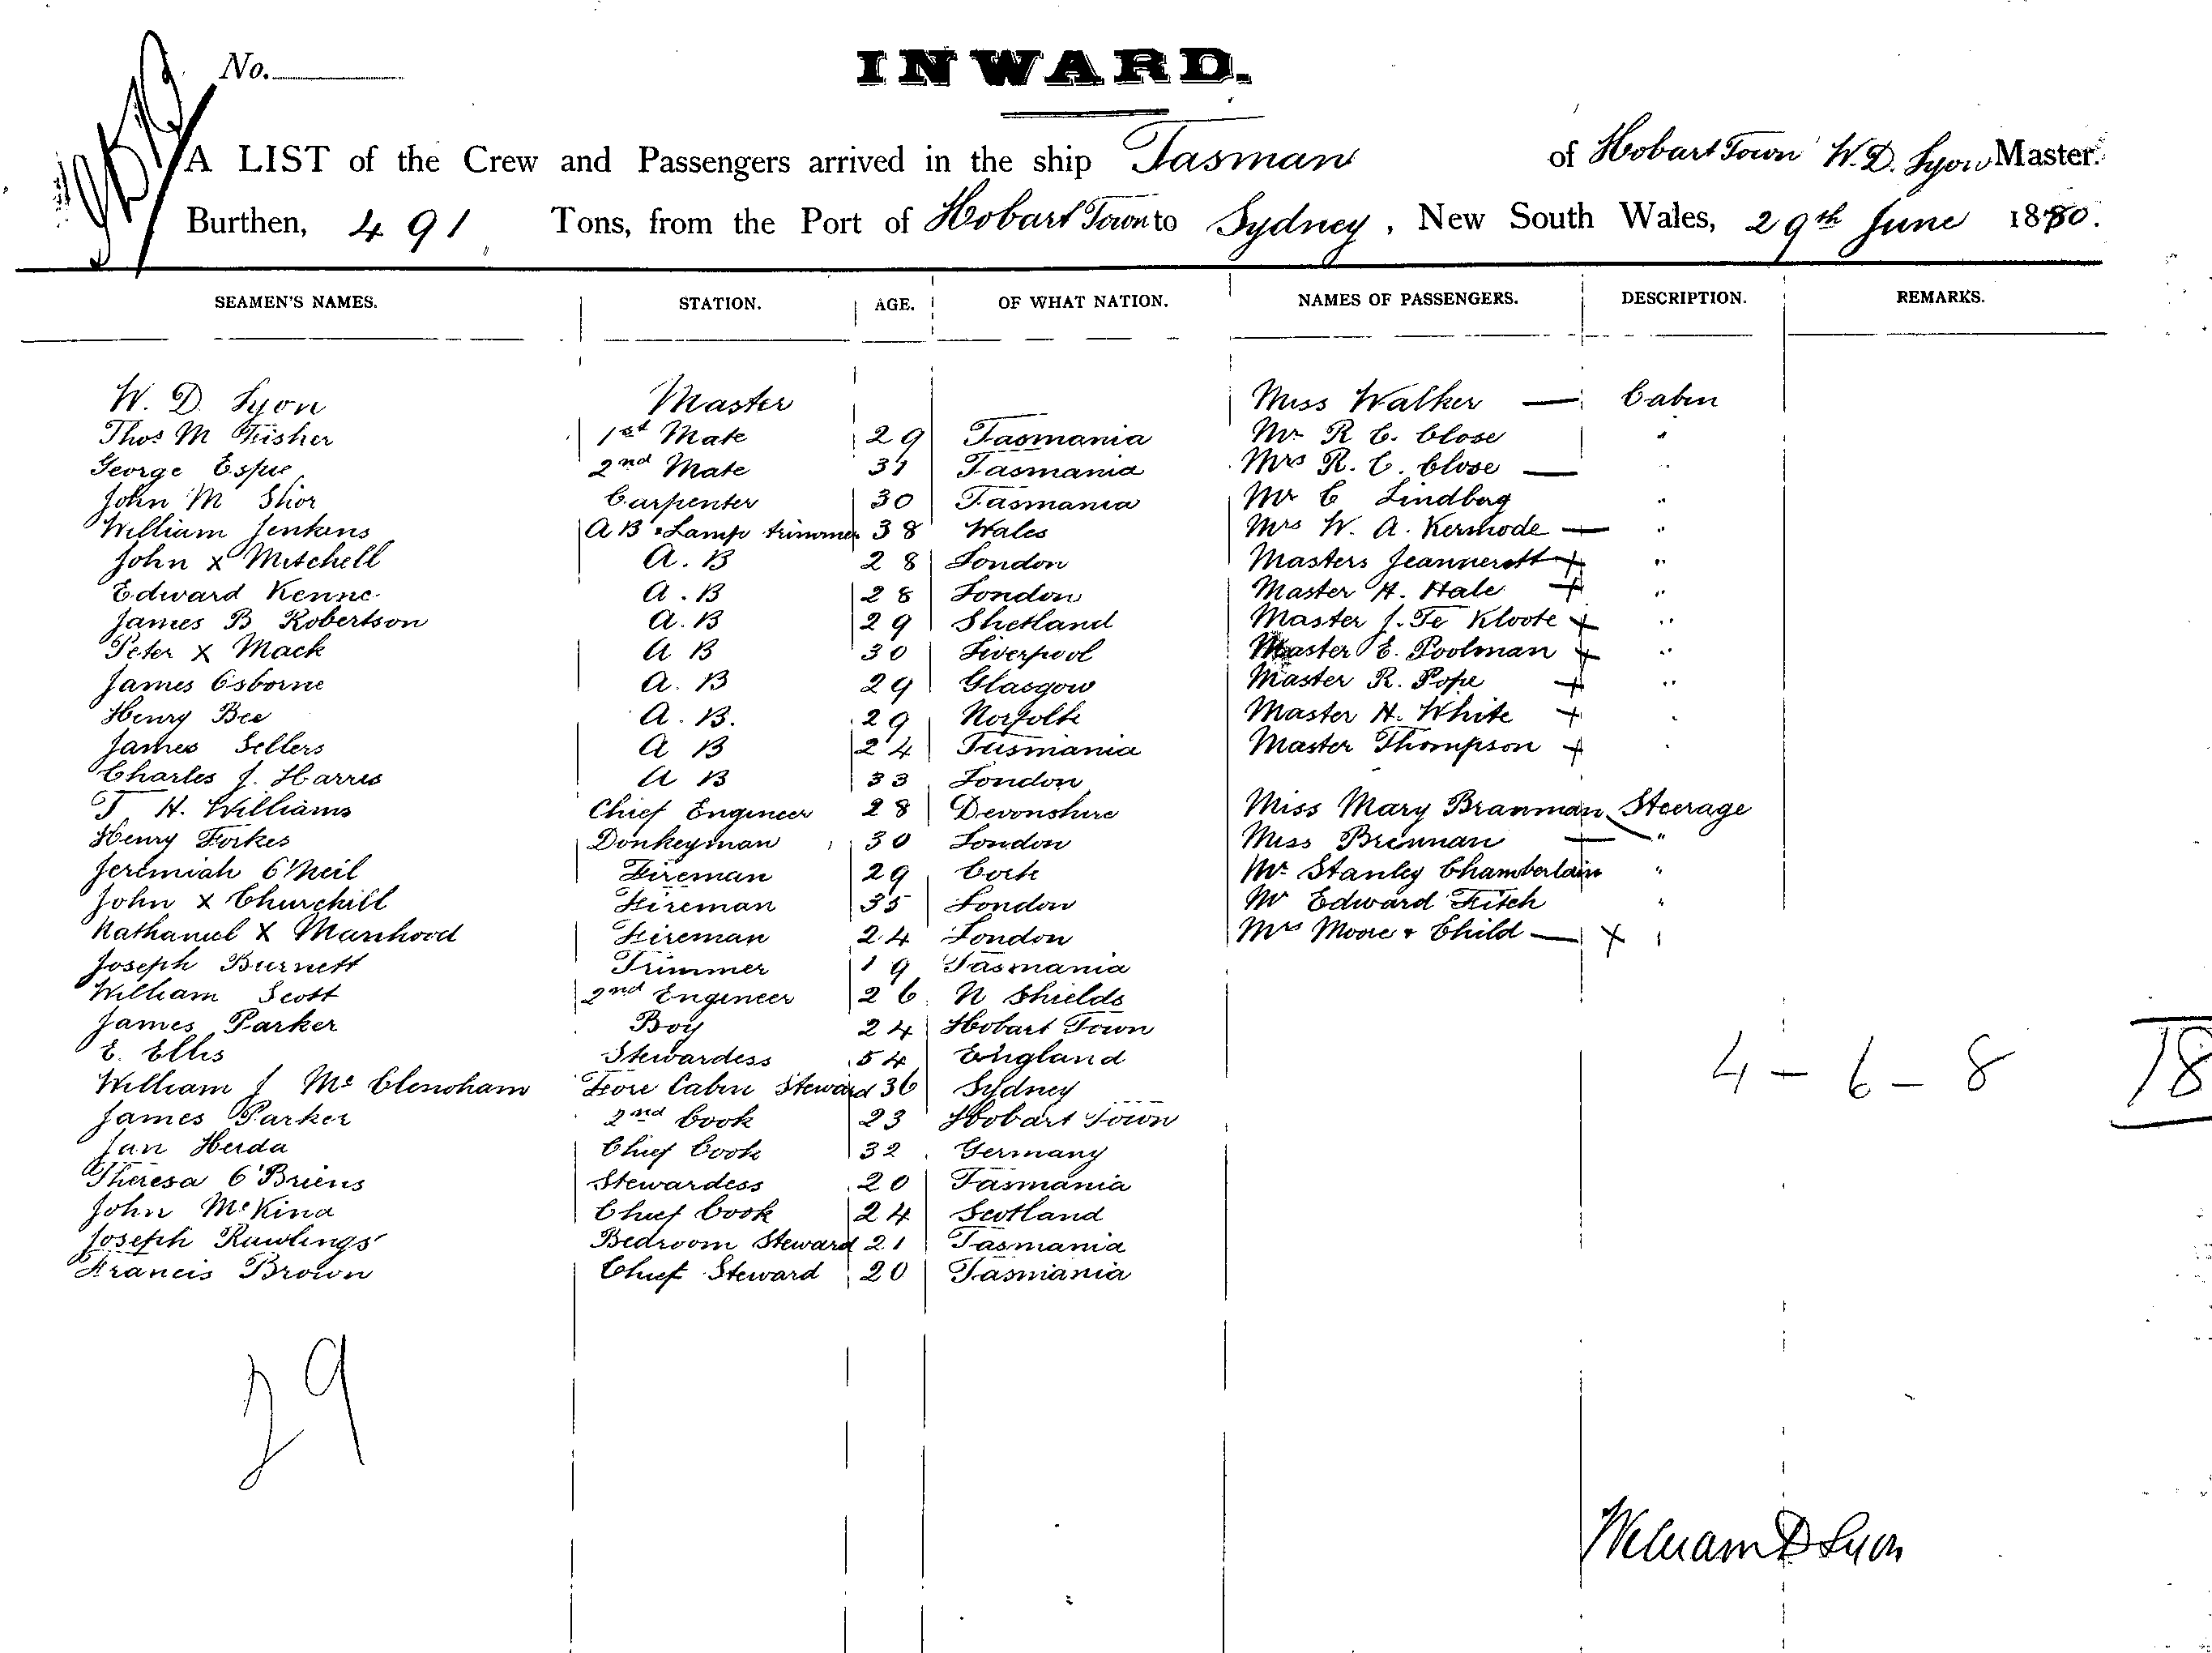 No.
INWARD.
A LIST of the Crew and Passengers arrived in the ship Tasman of Hobart Town W. D. Lyon Master.
Burthen, 491 Tons, from the Port of Hobart Town to Sydney, New South Wales, 29th June 1880.
SEAMEN'S NAMES. STATION. AGE. OF WHAT NATION. NAMES OF PASSENGERS. DESCRIPTION. REMARKS.
W. D. Lyon Master Miss Walker — Cabin
Thos M Fisher 1st Mate 29 Tasmania Mr R C. Close "
George Espie 2nd Mate 31 Tasmania Mrs R. C. Close — "
John M Carpenter 30 Tasmania Mr C Lindberg "
William Jenkins A B & Lamp trimmer 38 Wales Mrs W. A. Kermode — "
John x Mitchell A. B 28 London Masters Jeannerett + "
Edward A. B 28 London Master H. Hale + "
James B Robertson A. B 29 Shetland Master J. Te Kloote + "
Peter X Mack A B 30 Liverpool Master E. Poolman + "
James Osborne A. B 29 Glasgow Master R. Pope + "
Henry Bee A. B. 29 Norfolk Master H. White + "
James Sellers A B 24 Tasmania Master Thompson + "
Charles J. Harris A B 33 London
T H. Williams Chief Engineer 28 Devonshire Miss Mary Branman Steerage
Henry Forkes Donkeyman 30 London Miss Brennan — "
Jeremiah O'Neil Fireman 29 Cork Mr Stanley Chamberlain "
John X Churchill Fireman 35 London Mr Edward Fitch "
Nathaniel X Manhood Fireman 24 London Mrs Moore & Child — X "
Joseph Burnett Trimmer 19 Tasmania
William Scott 2nd Engineer 26 N Shields
James Parker Boy 24 Hobart Town
E. Ellis Stewardess 54 England
William J Mc Clenoham Fore Cabin Steward 36 Sydney
James Parker 2nd Cook 23 Hobart Town
Jan Heida Chief Cook 32 Germany
Theresa O'Briens Stewardess 20 Tasmania
John McKina Chief Cook 24 Scotland
Joseph Rawlings Bedroom Steward 21 Tasmania
Francis Brown Chief Steward 20 Tasmania
4 – 6 – 8 18
29
William D Lyon